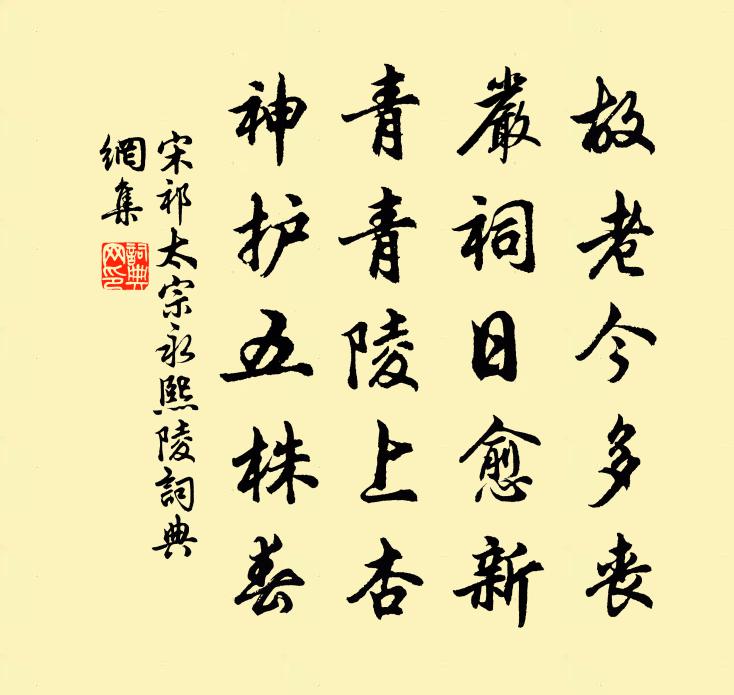 故老今多丧
嚴祠日愈新
青青陵上杏
神护五株春
宋祁太宗永熙陵詞典
網集
詞典
网印